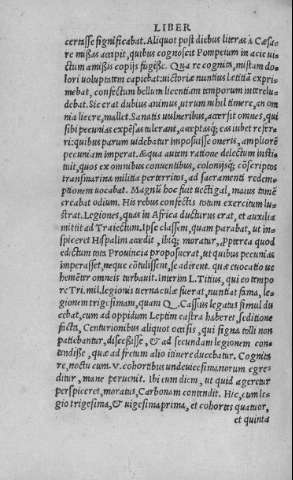 LIBER
cernisse significabat. Aliquot post diebus literas à Cæsa
re missas accipit, quibus cognoscit Pompeium in acie vi
ctum amissis copijs fugisse. Qua re cognita, mistam do
lori voluptatem capiebat: victoriæ nuntius lætitiā expri
mebat, confectum bellum licentiam temporum interclu
debat. Sic erat dubius animus, utrum nihil timere, an om
nia licere, mallet. Sanatis vulneribus, accersit omnes, qui
sibi pecunias expēsas tulerant, acceptasq; eas iubet referre
ri: quibus parum videbatur imposuisse oneris, ampliorē
pecuniam imperat. Æqua autem ratione delectum instituit
tuit, quos ex omnibus conventibus, colonijsq; cōscriptos
transmarina militia perterritos, ad sacramenti redem
ptionem vocabat. Magnū hoc fuit vectigal, maius tamē
creabat odium. His rebus confectis totum exercitum lu
strat. Legiones, quas in Africā ducturus erat, et auxilia
mittit ad Traiectum. Ipse classem, quam parabat, ut in
spiceret Hispalim accedit, ibiq; moratur, Ppterea quod
edictum tota Provincia proposuerat, ut quibus pecunias
imperasset, neque cōtulissent, se adirent. quæ evocatio ve
hemēter omneis turbavit. Interim L. Titius, qui eo tempo
re Tri. mil. legionis vernaculæ fuerat, nuntiat fama, le
gionem trigesimam, quam Q. Cassius legatus simul du
cebat, cum ad oppidum Leptim castra haberet, seditione
facta, Centurionibus aliquot occisis, qui signa tolli non
patiebantur, discessisse, & ad secundam legionem con
tendisse, quæ ad fretum alio itinere ducebatur. Cognita
re, noctu cum. v. cohortibus undevicesimanorum egre
ditur, mane pervenit. Ibi eum diem, ut quid ageretur
perspiceret, moratus, Carbonam contendit. Hic, cum le
gio trigesima, & vigesimaprima, et cohortes quatuor,
et quinta